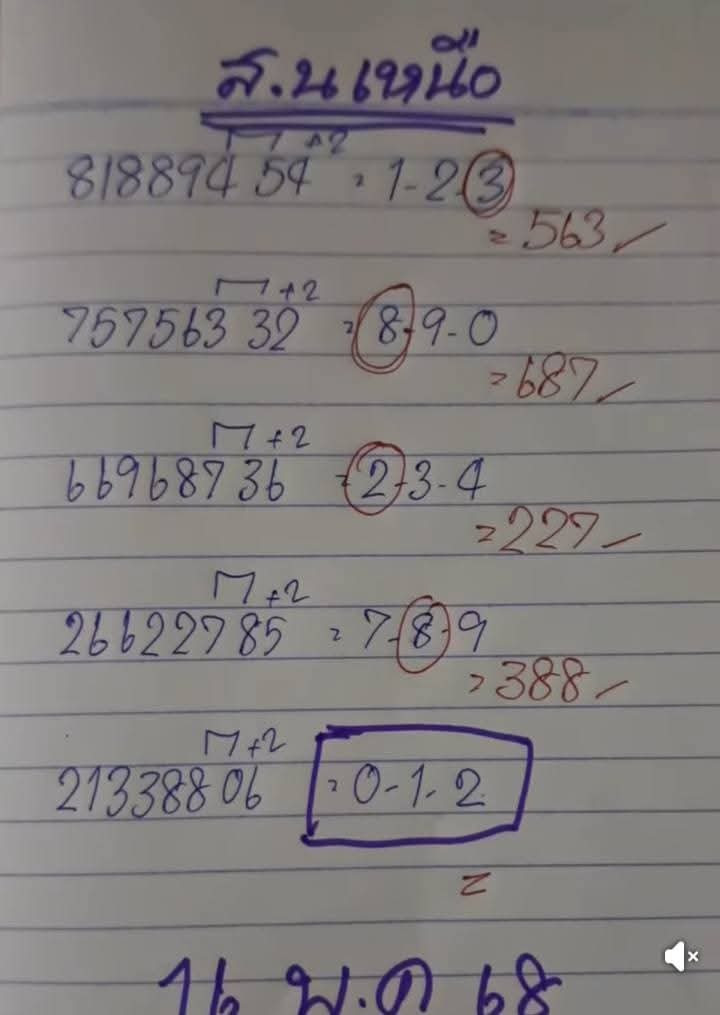 ส.น เหนือ
+2
81889454 = 1-2-3
= 563 ✓
+2
75756332 = 8-9-0
= 687 ✓
+2
66968736 = 2-3-4
= 227 ✓
+2
26622785 = 7-8-9
= 388 ✓
+2
21338806 = 0-1-2
=
16 พ.ค 68